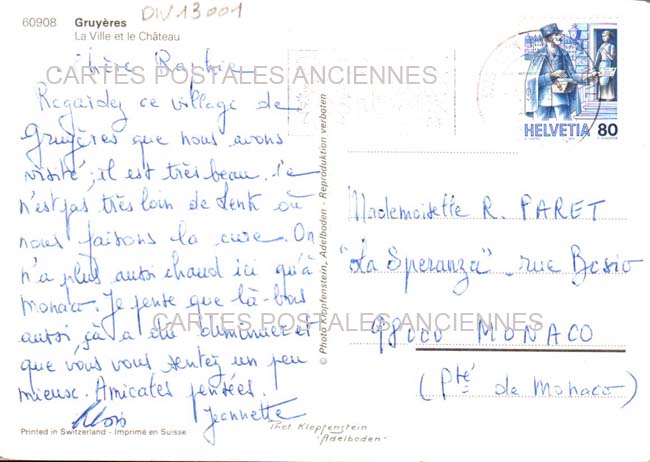 DIV13001
60908 Gruyères
La Ville et le Château
CARTES POSTALES ANCIENNES
Regardez ce village de
Gruyères que nous avons
visité, il est très beau. Ce
n'est pas très loin de Lenk où
nous faisons la cure. On
n'a plus aussi chaud ici qu'à
Monaco. Je pense que là-bas
aussi, ça a été diminuer et
que vous vous sentez un peu
mieux. Amicales pensées.
Jeannette
Printed in Switzerland - Imprimé en Suisse
© Photo Klopfenstein, Adelboden - Reproduktion verboten
HELVETIA 80
Mademoiselle R. PARET
"La Speranza" - rue Bosio
98000 MONACO
(Pté de Monaco)
CARTES POSTALES ANCIENNES
Phot Klopfenstein
"Adelboden"